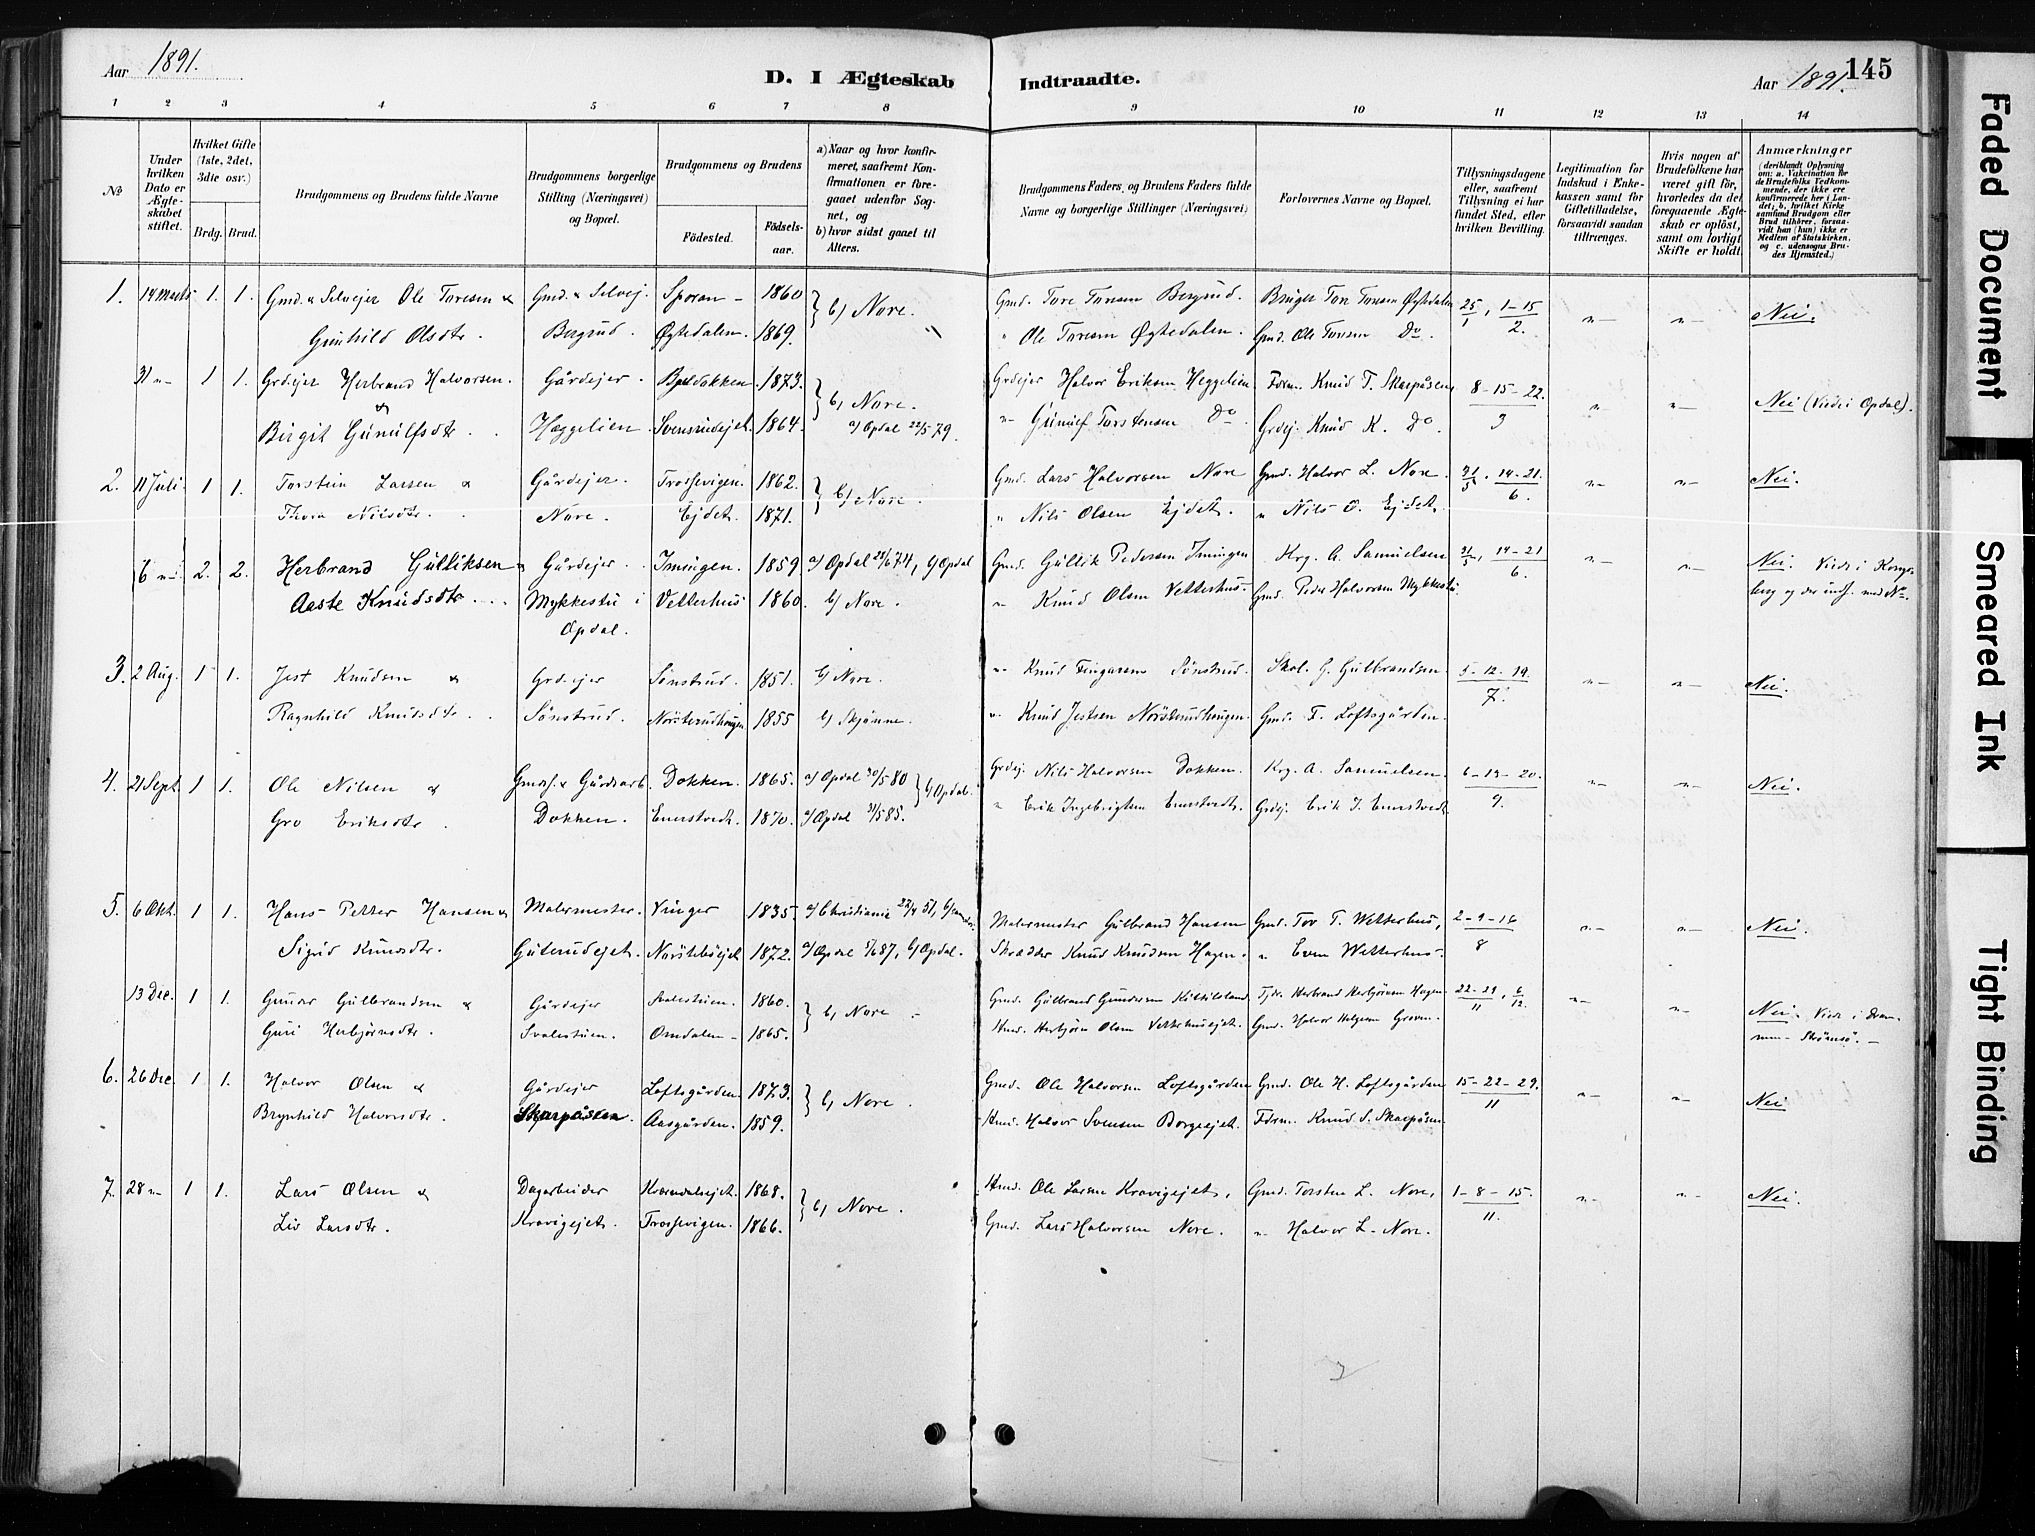 Aar 1891.
D. I Ægteskab Indtraadte.
Aar 1891.
145
1 2 3 4 5 6 7 8 9 10 11 12 13 14
№
Under hvilken Dato er Ægteskabet stiftet.
Hvilket Gifte (1ste, 2det, 3die osv.)
Brdg. Brud.
Brudgommens og Brudens fulde Navne
Brudgommens borgerlige Stilling (Næringsvei) og Bopæl.
Brudgommens og Brudens
Födested. Födsels-aar.
a) Naar og hvor konfirmeret, saafremt Konfirmationen er foregaaet udenfor Sognet, og
b) hvor sidst gaaet til Alters.
Brudgommens Faders, og Brudens Faders fulde Navne og borgerlige Stillinger (Næringsvei)
Forlovernes Navne og Bopæl.
Tillysningsdagene eller, saafremt Tillysning ei har fundet Sted, efter hvilken Bevilling.
Legitimation for Indskud i Enkekassen samt for Giftetilladelse, forsaavidt saadan tiltrænges.
Hvis nogen af Brudefolkene har været gift för, hvorledes da det foregaaende Ægteskab er oplöst, samt om lovligt Skifte er holdt.
Anmærkninger
(deriblandt Oplysning om: a. Vakcination för de Brudefolks Vedkommende, der ikke ere konfirmerede her i Landet; b, hvilket Kirkesamfund Brudgom eller Brud tilhörer, forsaavidt han (hun) ikke er Medlem af Statskirken, og c. udensogns Brudes Hjemsted.)
1. 14 Marts 1. 1. Gmd. & Selvejer Ole Toresen & Gmd. & Selvej. Sporan 1860 b) Nore. Gmd. Tore Toresen Bergrud. Bruger Tore Toresen Øgtedalen 25/1, 1-15/2. " " Nei.
Gunhild Olsdtr. Bergrud. Øgtedalen. 1869. " Ole Toresen Øgtedalen. Gmd. Ole Toresen Do.
31 " 1 1. Grdejer Herbrand Halvorsen & Gårdejer. 1873. b, Nore. Grdejer Halvor Eriksen Heggelien Form. Knud T. Skarpåsen 8-15-22./3 " " Nei (Viede i Opdal).
Birgit Gunulfsdtr. Hæggelien. Svensrudejet. 1864. a) Opdal 22/5 79. " Gunulf Torstensen Do. Grdej. Knud K. Do.
2. 11 Juli. 1 1. Torstein Larsen & Gårdejer. Trossevigen. 1862. b) Nore. Gmd. Lars Halvorsen Nore Gmd. Halvor L. Nore. 31/5, 14-21./6. " " Nei.
Thora Nilsdtr. Nore. Ejdet. 1871. " Nils Olsen Ejdet. " Nils O. Ejdet.
6 " 2. 2. Herbrand Gulliksen & Gårdejer. Imingen. 1859 a) Opdal 28/6 74, b) Opdal Gmd. Gullik Pedersen Imingen Krg. A. Samuelsen 31/5, 14-21/6. " " Nei. Viede i Kongs-
Aaste Knudsdtr. Mykkestu i Vetterhus 1860. b) Nore. " Knud Olsen Vetterhus. Gmd. Peder Halvorsen Mykkestu. berg og der indf. med No.
Opdal.
3. 2 Aug. 1 1. Jest Knudsen & Grdejer Sønstrud. 1851. b) Nore. " Knud Fingarsen Sønstrud. Skol. G. Gulbrandsen. 5-12-19./7. " " Nei.
Ragnhild Knudsdtr. Sønstrud. Nørsterudhaugen 1855 b) Skjønne. " Knud Jestsen Nørsterudhaugen. Gmd. T. Loftsgården.
4. 21 Sept. 1 1. Ole Nilsen & Gmdsf. & Gårdsarb. Dokken. 1865. a) Opdal 30/5 80 b) Opdal. Grdej. Nils Halvorsen Dokken. Krg. A. Samuelsen. 6-13-20./9. " " Nei.
Gro Eriksdtr. Dokken. Enerstvedt. 1870. a) Opdal 31/5 85. " Erik Ingebrigtsen Enerstvedt. Grdej. Erik I. Enerstvedt.
5. 6 Okt. 1 1. Hans Petter Hansen & Malermester. Vinger 1835. a) Christiania 22/4 51, Malermester Gulbrand Hansen Gmd. Tov T. Wetterhus, 2-9-16/8 " " Nei.
Sigrid Knudsdtr. Guterudejet. Nørstebøejet 1872. a) Opdal 5/6 87, b) Opdal. Skrædder Knud Knudsen Hagen. " Even Wetterhus.
13 Dec. 1 1. Gunnar Gulbrandsen & Gårdejer Svalestuen. 1860. b, Nore. Gmd. Gulbrand Gundersen Kittilsland Tjr. Herbrand Herbjørnsen Hagen 22-29/11, 6/12. " " Nei. Viede i Dram-
Guri Herbjørnsdtr. Svalestuen. Omdalen 1865. Hmd. Herbjørn Olsen Vetterhusejet. Gmd. Halvor Helgesen Groven. men Strømsø.
6. 26 Dec. 1 1. Halvor Olsen & Gårdejer Loftsgården 1873. b, Nore. Gmd. Ole Halvorsen Loftsgården Gmd. Ole H. Loftsgården 15-22-29./11 " " Nei
Brynhild Halvorsdtr. Skarpåsen. Aasgården. 1859. Hmd. Halvor Svensen Borgeejet. Form. Knud S. Skarpåsen
7. 28 " 1 1. Lars Olsen & Dagarbeider 1868. b, Nore. Hmd. Ole Larsen Kravigejet, Gmd. Torsten L. Nore, 1-8-15./11. " " Nei.
Liv Larsdtr. Kravigejet. Trossevigen. 1866. Gmd. Lars Halvorsen Nore. " Halvor L. Nore.
Faded Document
Smeared Ink
Tight Binding